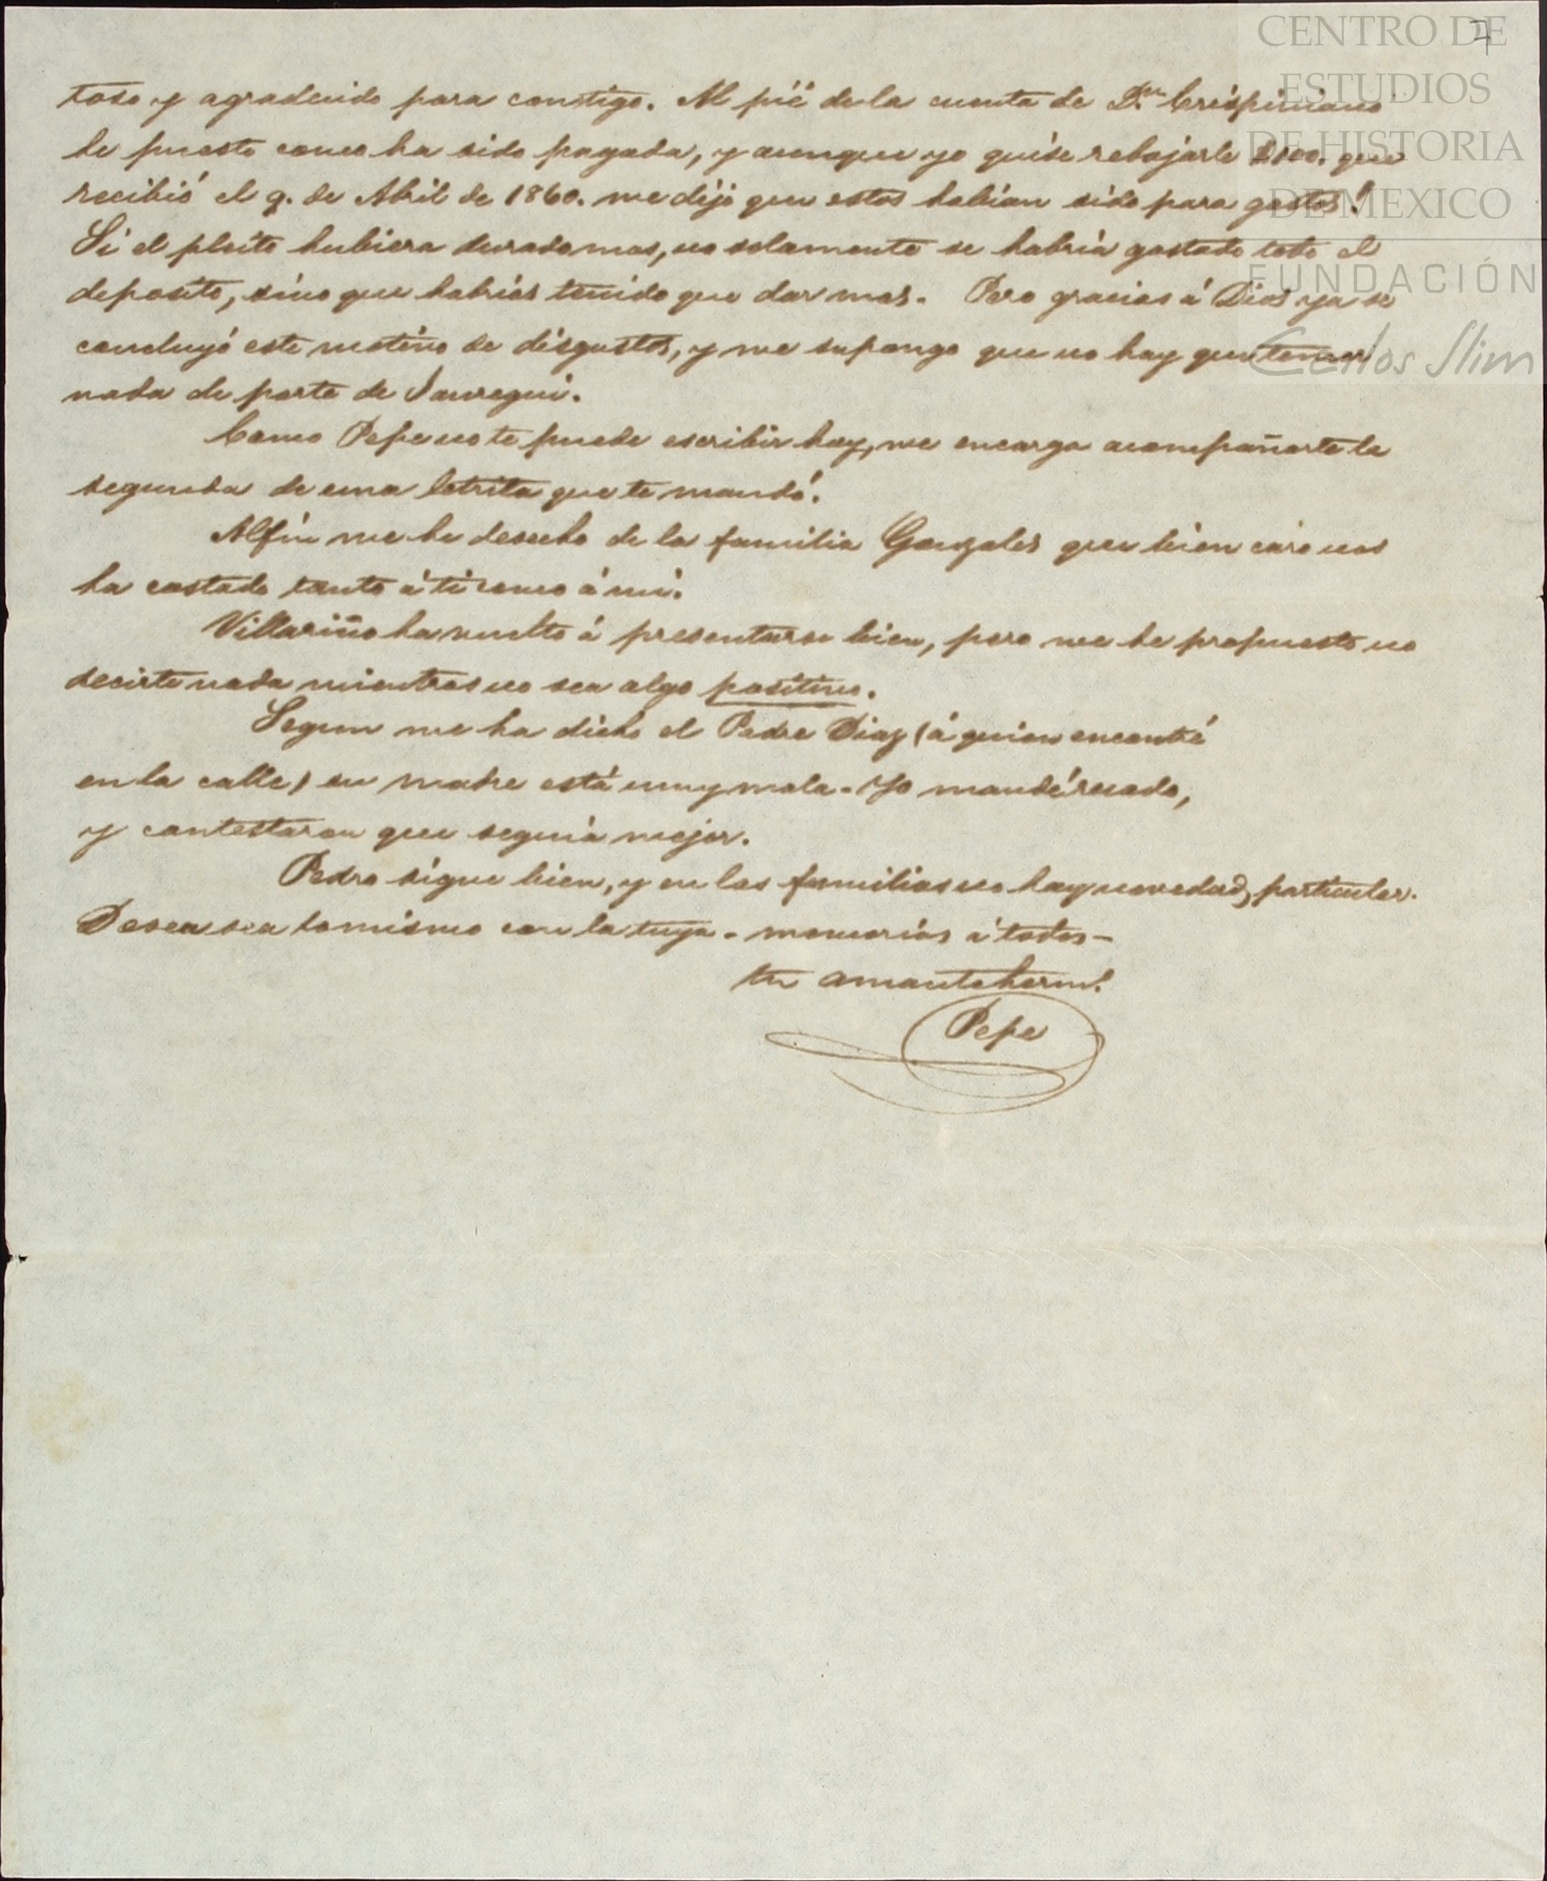 CENTRO DE
ESTUDIOS
DE HISTORIA
DE MEXICO
FUNDACIÓN
Carlos Slim
toso y agradecido para contigo. Al pié de la cuenta de D.n Crispiniano
he puesto como ha sido pagada, y aunque yo quise rebajarle $100. que
recibió el 9. de Abril de 1860. me dijo que estos habian sido para gastos!
Si el pleito hubiera durado mas, no solamente se habría gastado todo el
deposito, sino que habrías tenido que dar mas. Pero gracias á Dios ya se
concluyó este motivo de disgustos, y me supongo que no hay que temer
nada de parte de Jauregui.
Como Pepe no te puede escribir hoy, me encarga acompañarte la
segunda de una letrita que te mandó.
Alfin me he desecho de la familia Gonzales que bien caro nos
ha costado tanto á ti como á mi.
Villariño ha vuelto á presentarse bien, pero me he propuesto no
decirte nada mientras no sea algo positivo.
Segun me ha dicho el Padre Diaz (á quien encontré
en la calle) su madre está muy mala. Yo mandé recado,
y contestaron que seguia mejor.
Pedro sigue bien, y en las familias no hay novedad particular.
Deseo sea lo mismo con la tuya. memorias á todos —
tu amante herm.o
Pepe